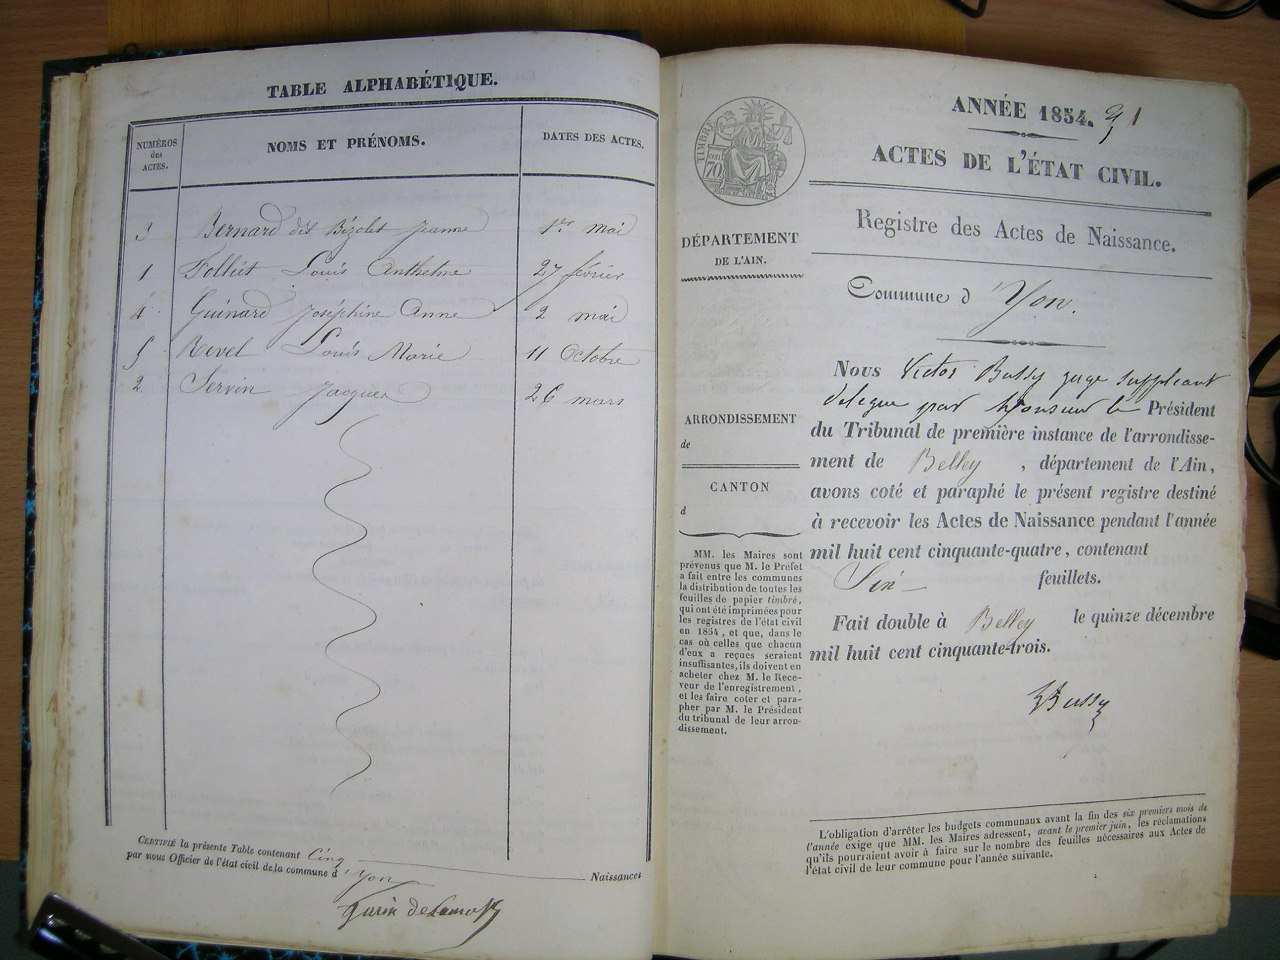 TABLE ALPHABÉTIQUE.
NUMÉROS des ACTES.
NOMS ET PRÉNOMS.
DATES DES ACTES.
3 Bernard dit Bizolet Jeanne 1er mai
1 Folliet Louis Anthelme 27 février
4 Guinard Joséphine Anne 2 mai
5 Revel Louis Marie 11 Octobre
2 Servin Jacques 26 mars
CERTIFIÉ la présente Table contenant Cinq Naissances
par nous Officier de l'état civil de la commune d'Yon
ANNÉE 1854. 91
ACTES DE L'ÉTAT CIVIL.
Registre des Actes de Naissance.
TIMBRE
70
DÉPARTEMENT
DE L'AIN.
ARRONDISSEMENT
de
CANTON
d
MM. les Maires sont
prévenus que M. le Préfet
a fait entre les communes
la distribution de toutes les
feuilles de papier timbré,
qui ont été imprimées pour
les registres de l'état civil
en 1854, et que, dans le
cas où celles que chacun
d'eux a reçues seraient
insuffisantes, ils doivent en
acheter chez M. le Rece-
veur de l'enregistrement,
et les faire coter et para-
pher par M. le Président
du tribunal de leur arron-
dissement.
Commune d'Yon.
Nous Victor Bussy juge suppléant
délégué par Monsieur le Président
du Tribunal de première instance de l'arrondisse-
ment de Belley, département de l'Ain,
avons coté et paraphé le présent registre destiné
à recevoir les Actes de Naissance pendant l'année
mil huit cent cinquante-quatre, contenant
Six feuillets.
Fait double à Belley le quinze décembre
mil huit cent cinquante-trois.
VBussy
L'obligation d'arrêter les budgets communaux avant la fin des six premiers mois de
l'année exige que MM. les Maires adressent, avant le premier juin, les réclamations
qu'ils pourraient avoir à faire sur le nombre des feuilles nécessaires aux Actes de
l'état civil de leur commune pour l'année suivante.